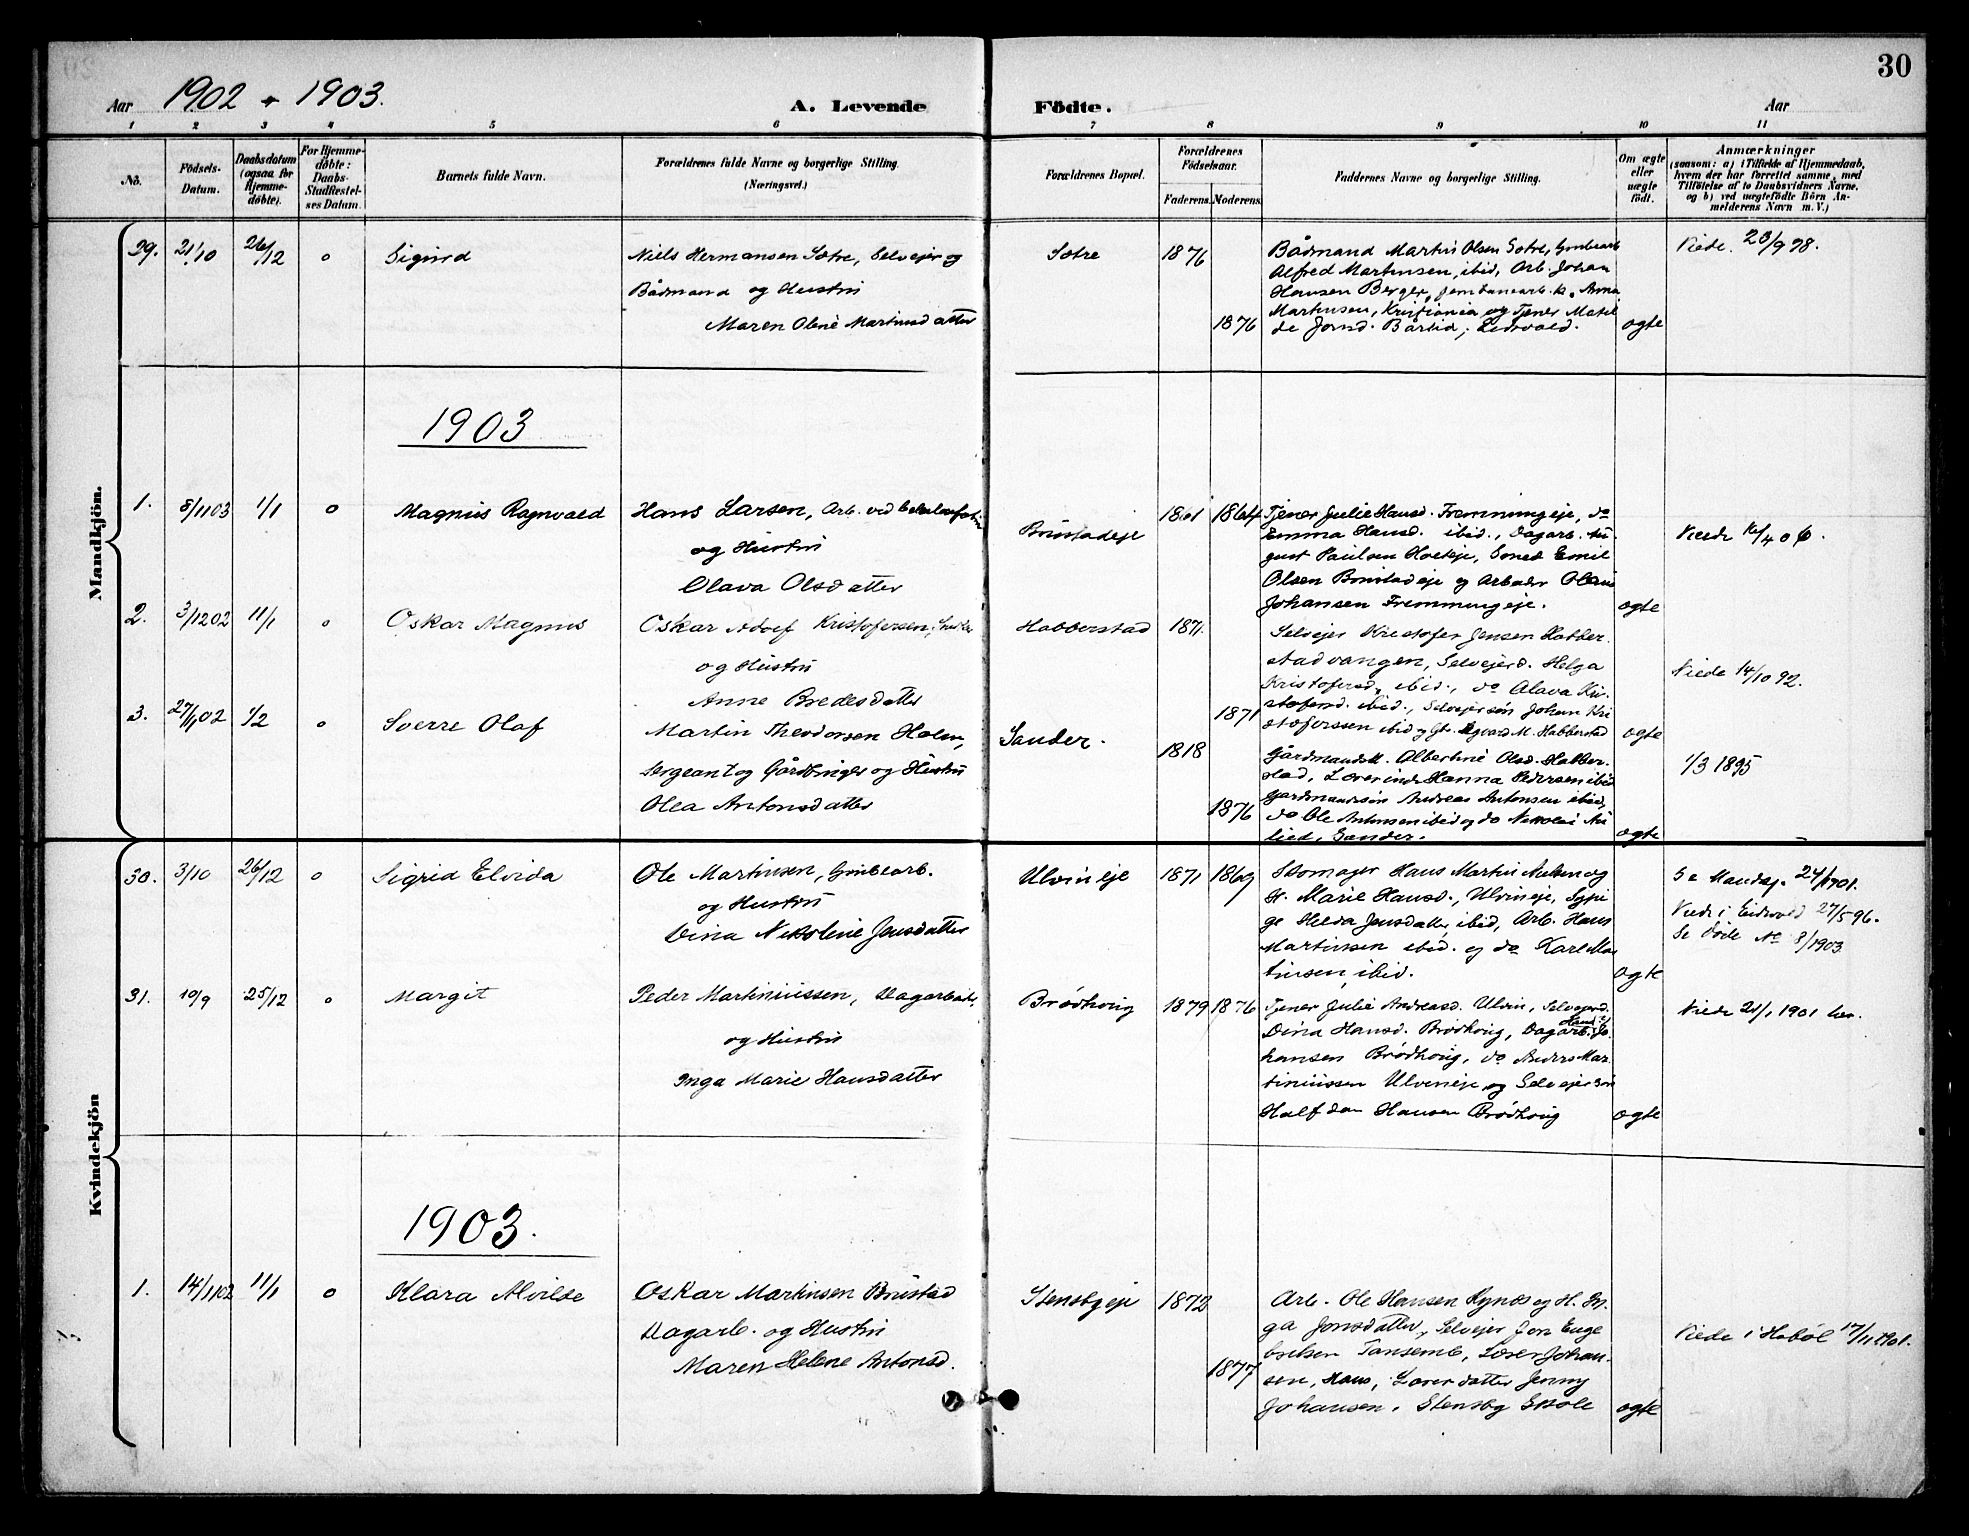 30
Aar 1902 + 1903.
A. Levende Födte.
Aar
1 2 3 4 5 6 7 8 9 10 11
No.
Födsels-Datum.
Daabsdatum (ogsaa for Hjemmedøbte).
For Hjemmedøbte: Daabs-Stadfæstelses Datum.
Barnets fulde Navn.
Forældrenes fulde Navne og borgerlige Stilling.
(Næringsvei.)
Forældrenes Bopæl.
Forældrenes Födselsaar.
Faderens. Moderens.
Faddernes Navne og borgerlige Stilling.
Om ægte eller uægte födt.
Anmærkninger
(saasom: a) i Tilfælde af Hjemmedaab,
hvem der har forrettet samme, med
Tilföielse af to Daabsvidners Navne,
og b) ved uægtefödte Börn An-
melderens Navn m. V.)
Mandkjön.
39. 21/10 26/12 o Sigurd
Niels Hermansen Sætre, Selveier og
Bådmand og Hustru
Maren Oline Martinsdatter
Sætre 1876 1876
Bådmand Martin Olsen Sætre, Grubearb
Alfred Martinsen, ibid, Arb. Johan
Hansen Berger, Anna
Martinsen, Kristiania og Tjener
ægte
Viede 23/9 98.
1903
1. 8/11 03 1/1 o Magnus Ragnvald
Hans Larsen, Arb. ved
og Hustru
Olava Olsdatter
Brustadeje 1864
Tjener Julie Hansd. Fremmingeje, do
Emma Hansd. ibid., Dagarb. Au-
gust Paulsen Emil
Olsen Brustadeje og Arbeider
Johansen Fremmingeje.
ægte
2. 3/12 02 11/1 o Oskar Magnus
Oskar Adolf Kristofersen,
og Hustru
Anne Bredesdatter
Habberstad 1871. 1871
Selvejer Kristofer Jensen Habber-
stadvangen, Selvejerd. Helga
Kristofersd. ibid., do Olava Kri-
stofersd. ibid., Selvejersøn Johan Kri
stoferssen ibid og M. Habberstad
ægte
Viede 14/10 92.
3. 27/1 02 1/2 o Sverre Olaf
Martin Theodorsen Holm,
Sergeant og Gårdbruger og Hustru
Olea Antonsdatter
Sander. 1876
Gårdmandsk. Albertine Olsd. Habber-
stad, Lærerinde Hanna Pedersen ibid
Gårdmandssøn Andreas Antonsen ibid,
do Ole Antonsen ibid og do Nikolai
Sander.
ægte
1/3 1895
Kvindekjön
30. 3/10 26/12 o Sigrid Elvida
Ole Martinsen, Grubearb.
og Hustru
Dina Nikoline Jensdatter
Ulvineje 1871 1869
Skomager Hans Martin Nielsen og
H. Marie Hansd., Ulvineje, Sypi
ge Helda Jensdatter, ibid, Arb. Hans
Martinsen ibid. og do Karl Mar
tinsen, ibid.
ægte
Viede i Eidsvold 27/5 96.
Se døde No 8/1903
31. 10/9 25/12 o Margit
Peder Martiniussen, Dagarbeid.
og Hustru
Inga Marie Hansdatter
Brødhovig 1879 1876
Tjener Julie Andreasd. Ulvin, Selvejerd.
Dina Hansd. Brødhovig, Dagarb. Jo-
hansen Brødhovig, do Anders Mar-
tiniussen Ulvineje og Selvejersøn
Halfdan Hansen Brødhovig
ægte
Viede 1901 her.
1903.
1. 14/11 02 11/1 o Klara Alvilde
Oskar Martinsen Brustad
Dagarb. og Hustru
Maren Helene Antonsd.
Stensbyeje 1872 1877
Arb. Ole Hansen og H. In-
ga Jonsdatter, Selvejer Jon Enge
bretsen Tansemb, Lærer Johan-
sen, Lærerdatter Jenny
Johansen, Stensby Skole
ægte
Viede i Hobøl 17/11 1901.